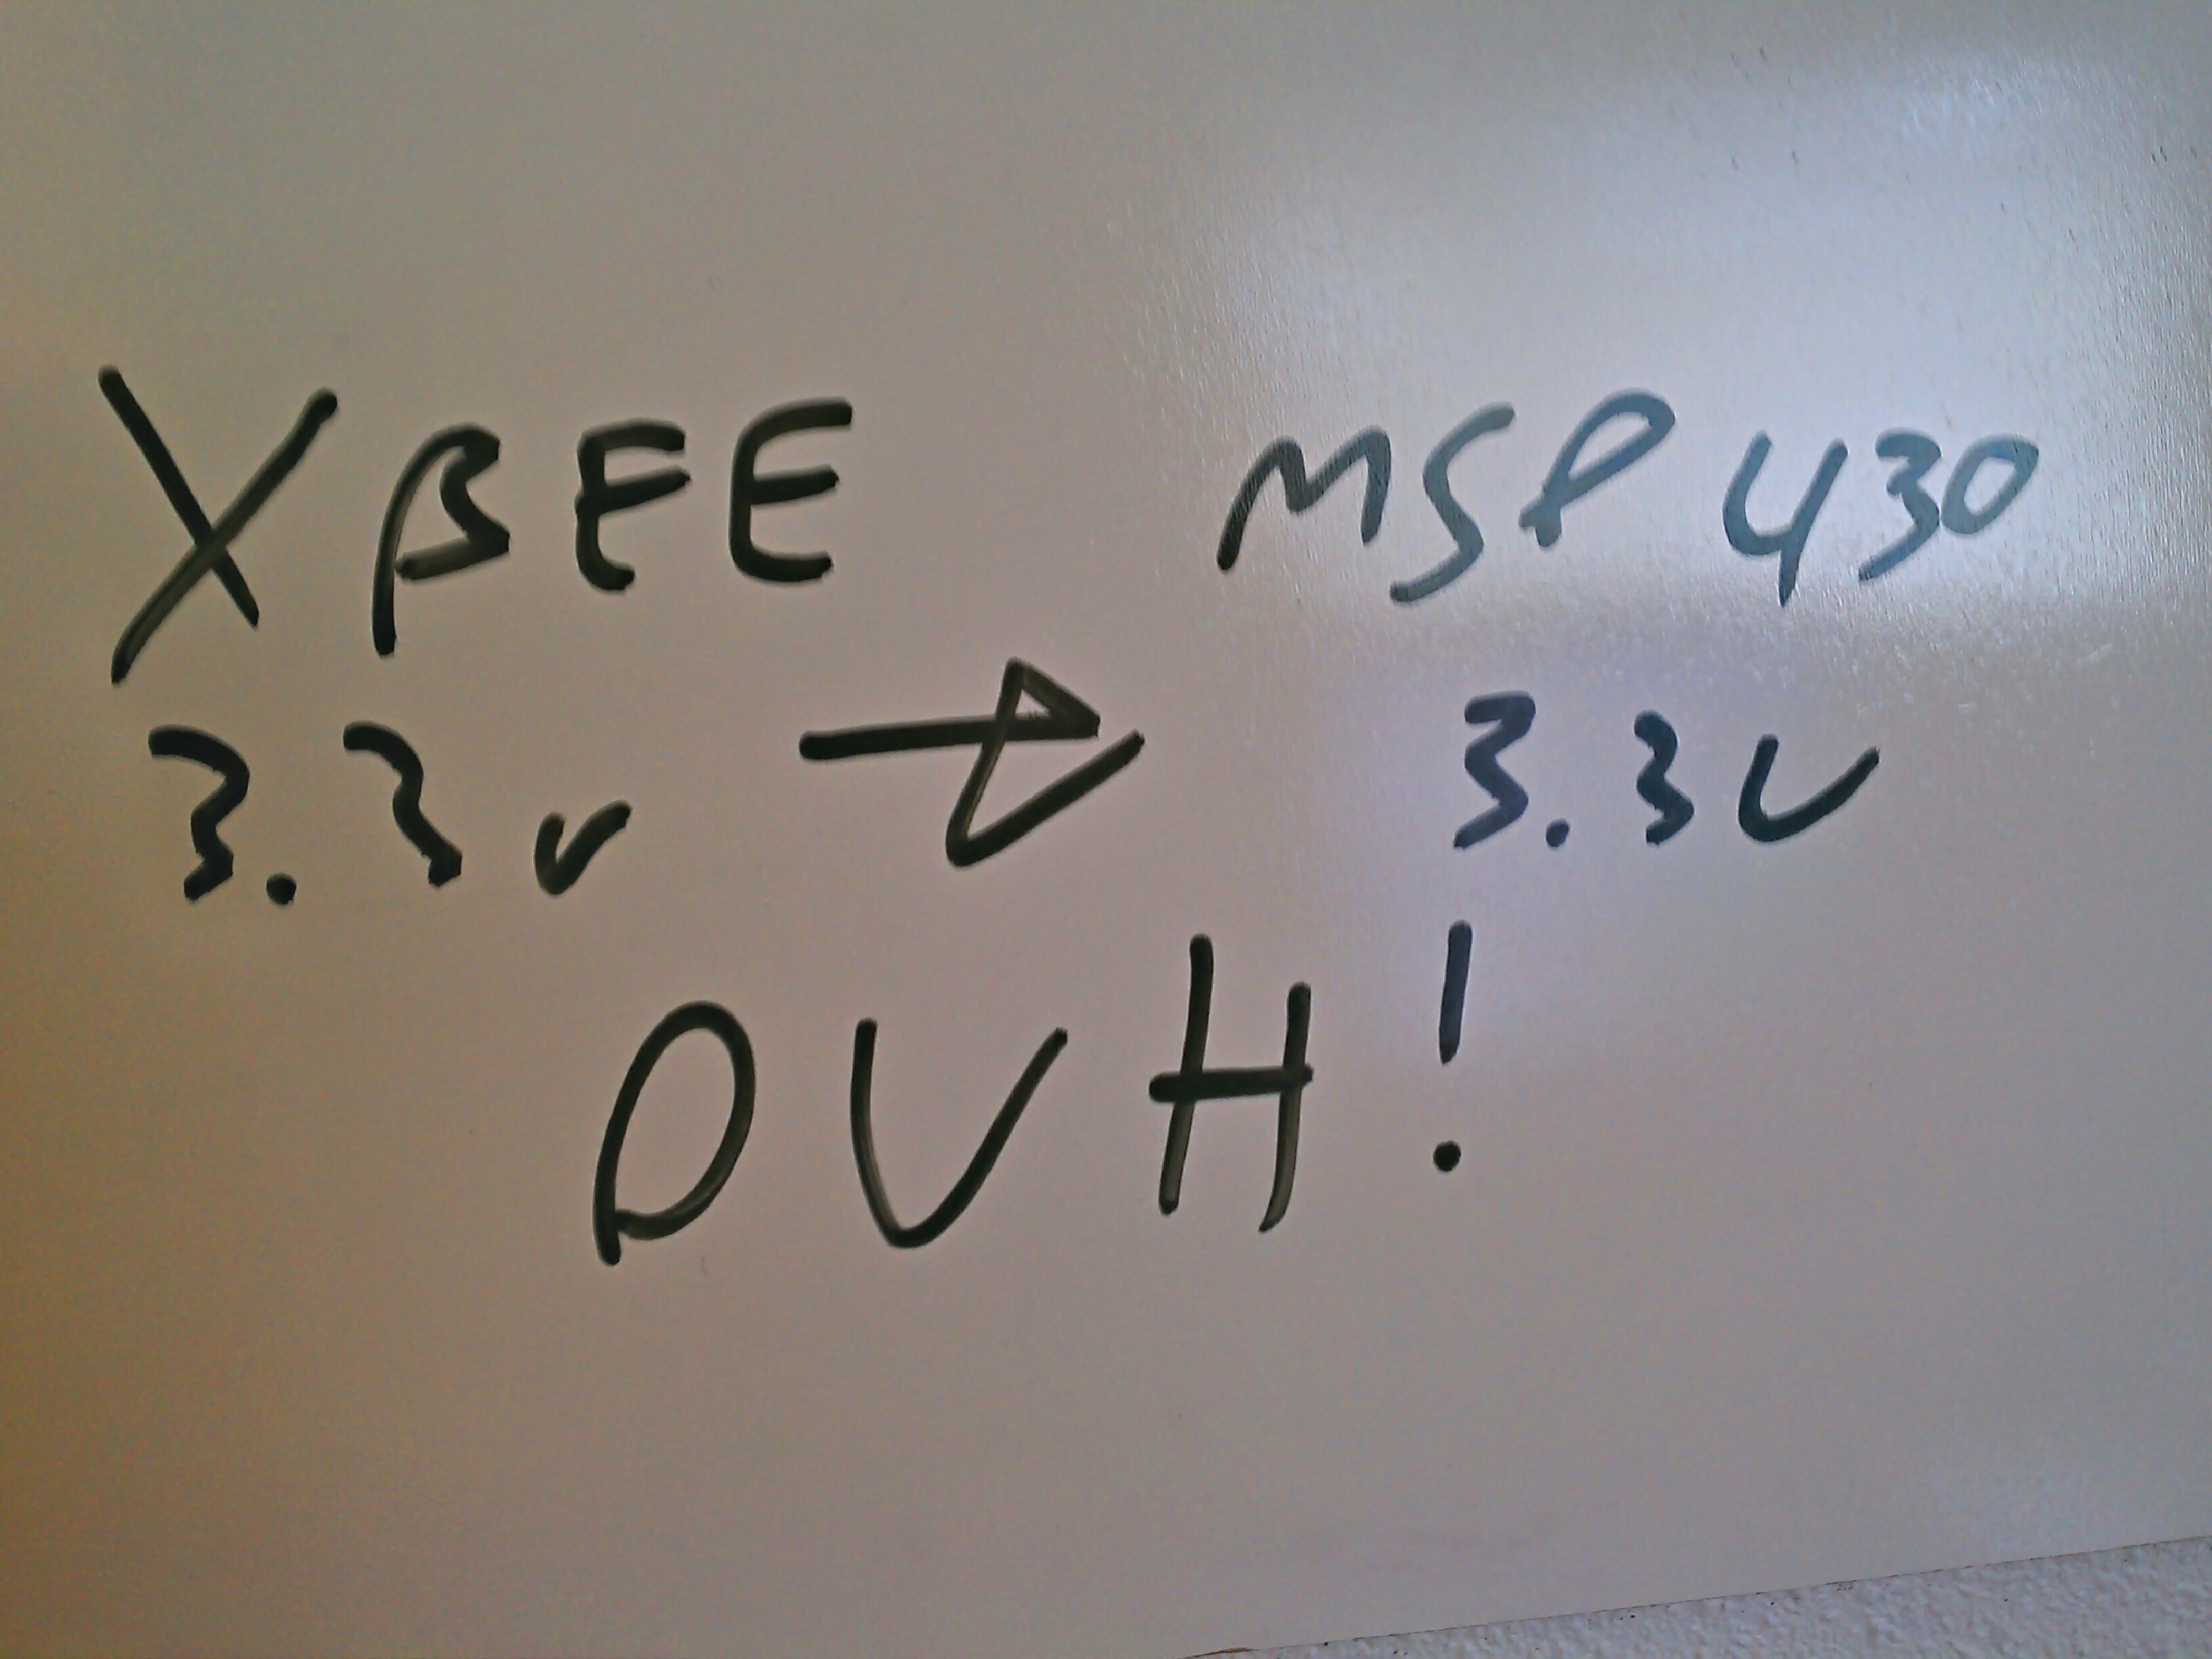 XBEE MSP430
3.3v → 3.3V
DUH!